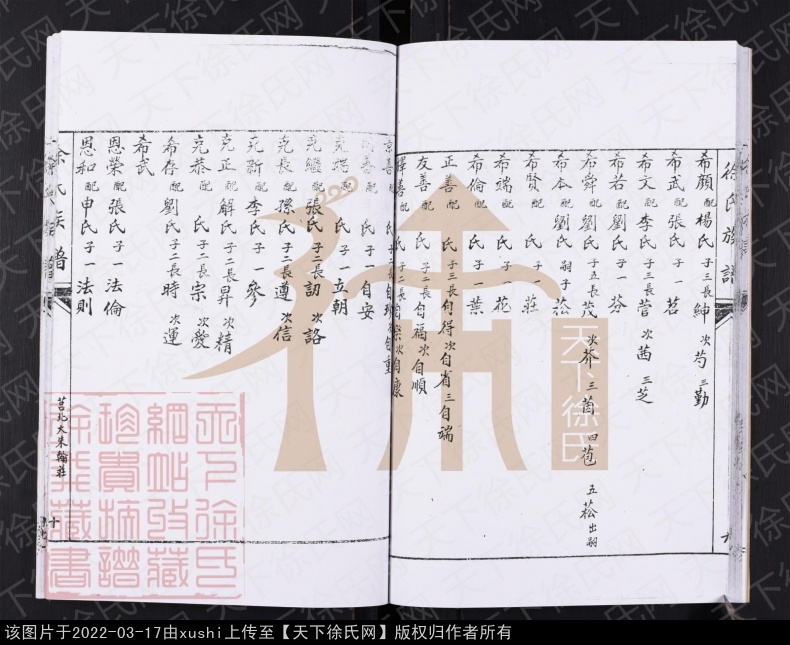 徐氏族譜
希顏配楊氏子三長紳次芍三勤
希武配張氏子一茗
希文配李氏子三長菅次茜三芝
希若配劉氏子一芬
希舜配劉氏子五長茂次芥三茵四苞五菘出嗣
希本配劉氏嗣子菘
希賢配 氏子一莊
希端配 氏子一花
希倫配 氏子一葉
正善配 氏子三長自得次自省三自端
友善配 氏子二長自福次自順
氏子一自安
氏子一立朝
克繼配張氏子二長訒次詻
克長配孫氏子二長遵次信
克新配李氏子一參
克正配解氏子二長昇次精
克恭配 氏子二長宗次愛
希存配劉氏子二長時次運
希武
恩榮配張氏子一法倫
恩和配申氏子一法則
徐氏族譜
莒北大朱翰莊
天下徐氏
天下徐氏网
该图片于2022-03-17由xushi上传至【天下徐氏网】版权归作者所有